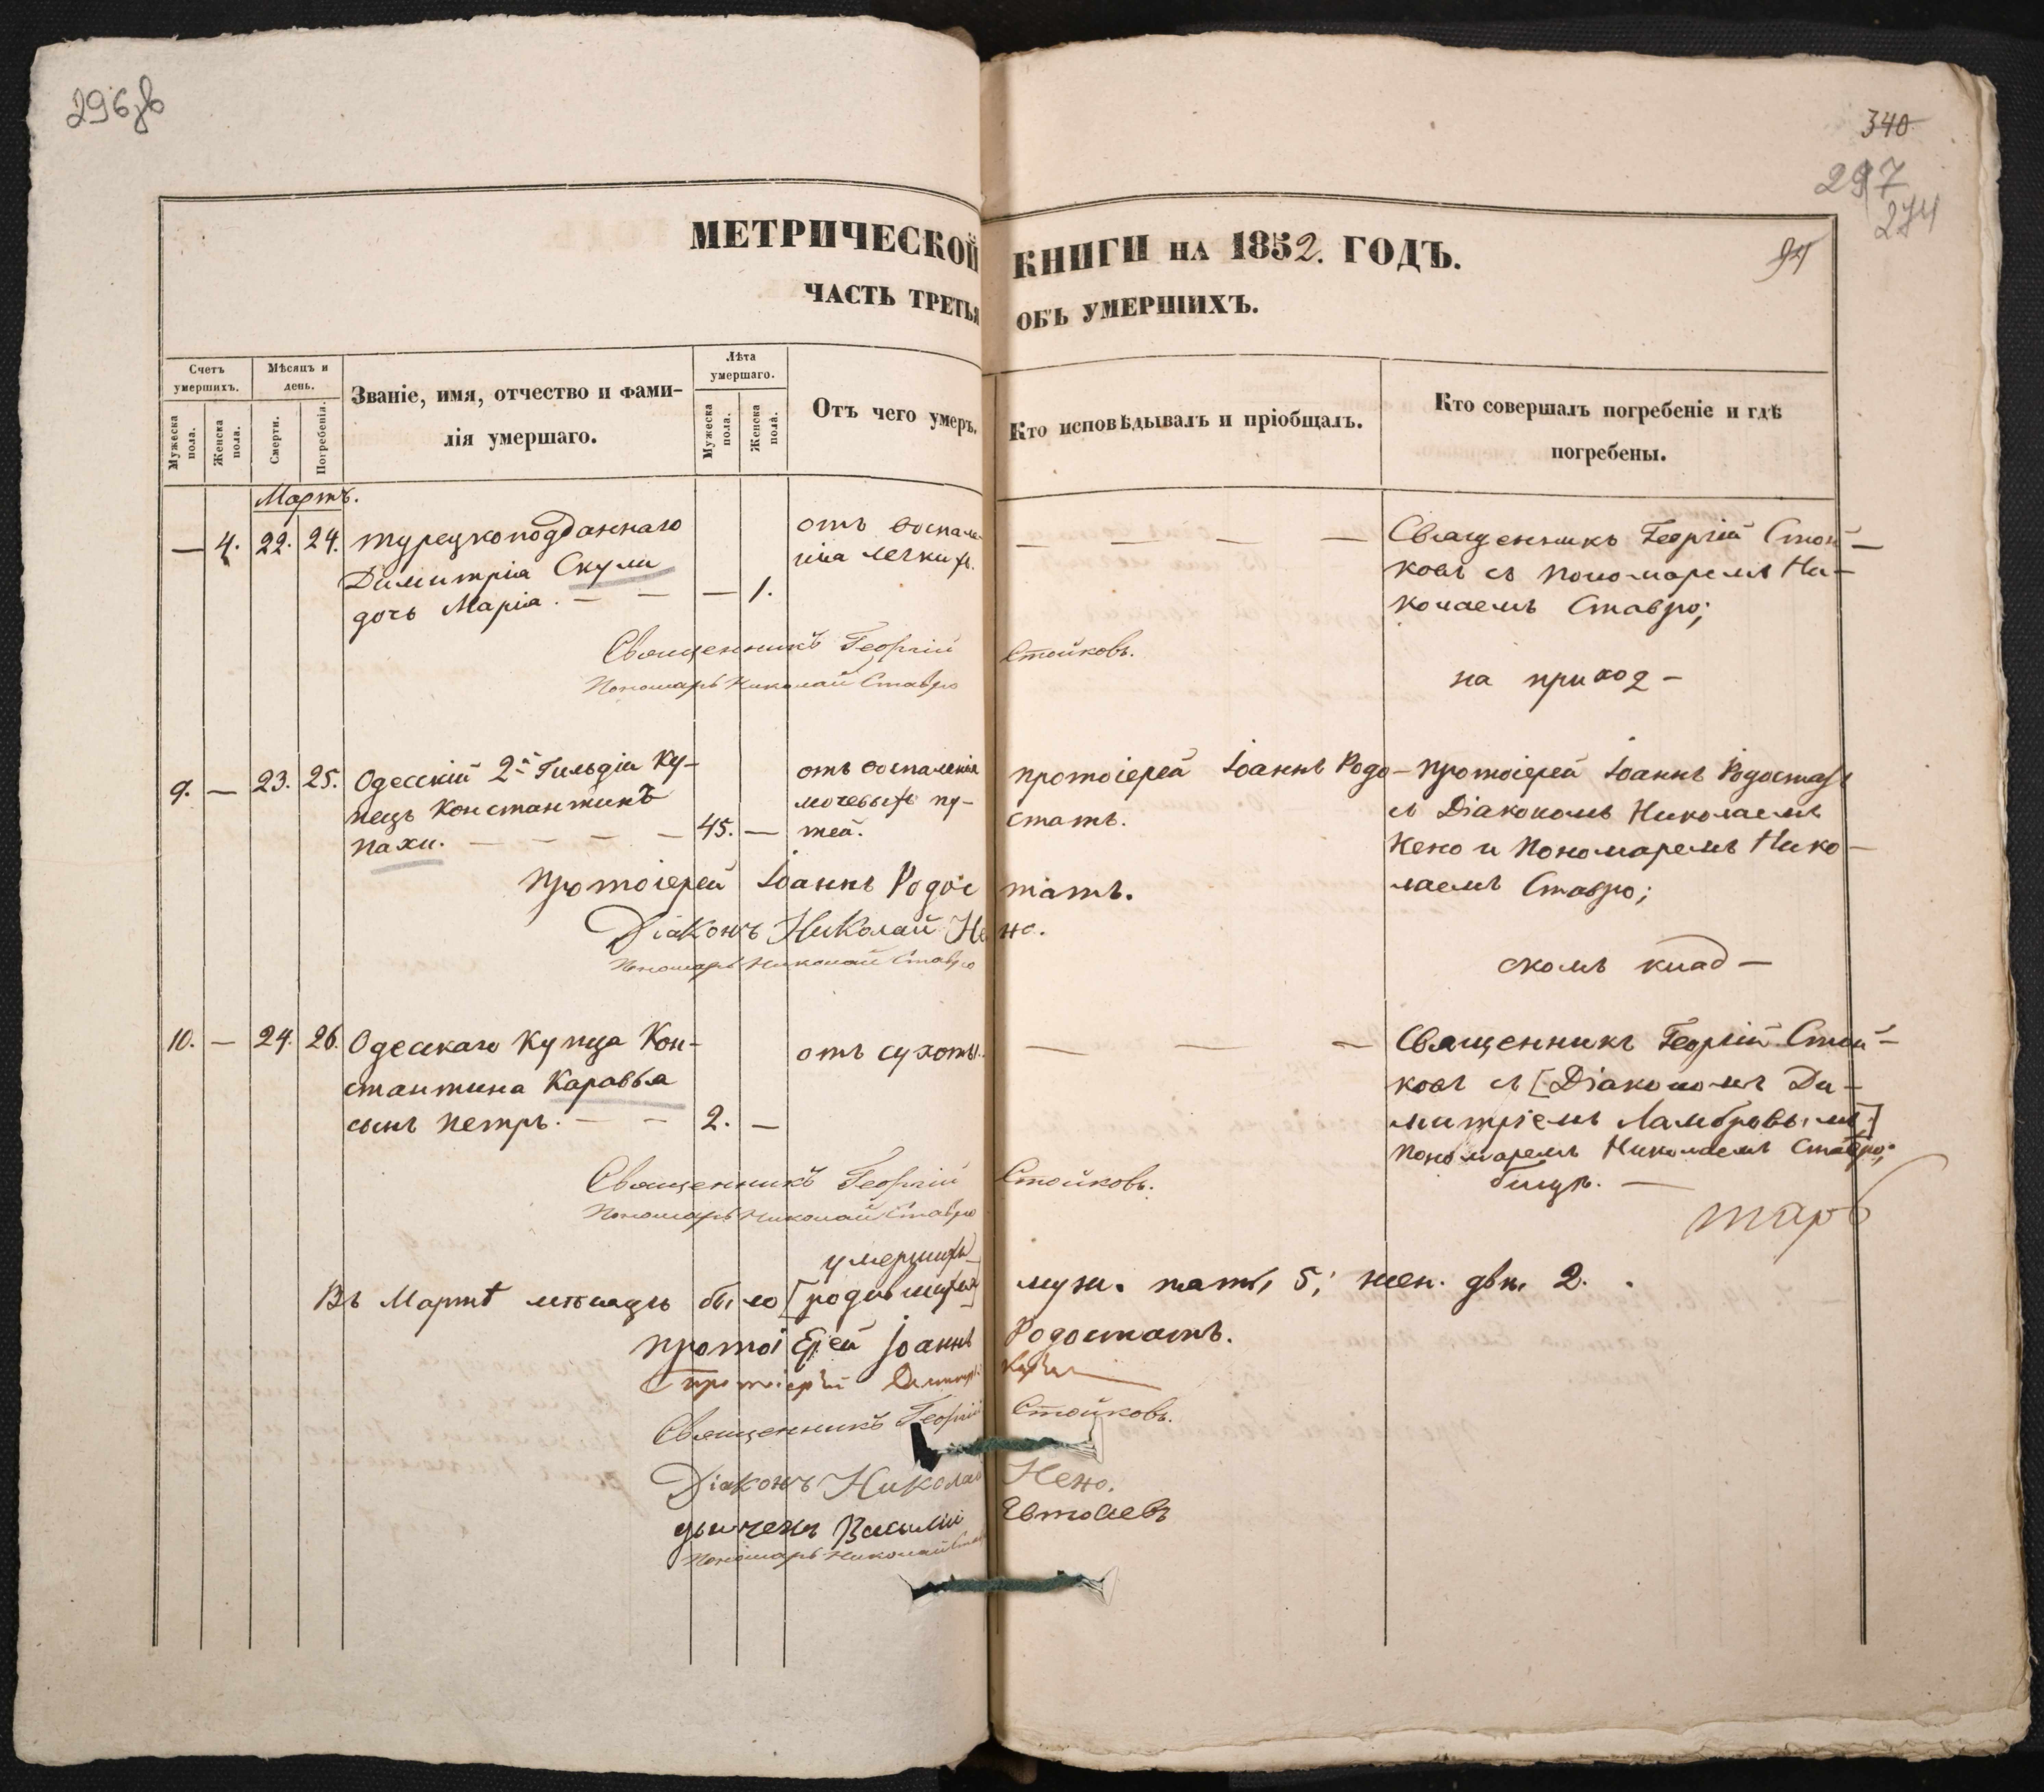 296 об
340
297
274
94
МЕТРИЧЕСКОЙ КНИГИ НА 1852. ГОДЪ.
ЧАСТЬ ТРЕТЬЯ ОБЪ УМЕРШИХЪ.
Счетъ умершихъ.
Мужеска пола.
Женска пола.
Мѣсяцъ и день.
Смерти.
Погребенія.
Званіе, имя, отчество и фами-
лія умершаго.
Лѣта умершаго.
Мужеска пола.
Женска пола.
Отъ чего умеръ.
Кто исповѣдывалъ и пріобщалъ.
Кто совершалъ погребеніе и гдѣ
погребены.
Мартъ.
— 4. 22. 24. Турецкоподданнаго
Димитрія Скули
дочь Марія. — — — 1.
отъ воспале-
нія легкихъ.
— — — —
Священникъ Георгій Стой-
ковъ съ Пономаремъ Ни-
колаемъ Ставро;
Священникъ Георгій Стойковъ.
Пономарь Николай Ставро
на приход-
9. — 23. 25. Одесскій 2й Гильдіи Ку-
пецъ Константинъ
Пахи. — — — — 45. —
отъ воспаленія
мочевыхъ пу-
тей.
Протоіерей Іоаннъ Родо-
статъ.
Протоіерей Іоаннъ Родостатъ
съ Діакономъ Николаемъ
Нено и Пономаремъ Нико-
лаемъ Ставро;
Протоіерей Іоаннъ Родостатъ.
Діаконъ Николай Нено.
Пономарь Николай Ставро
скомъ клад-
10. — 24. 26. Одесскаго Купца Кон-
стантина Каравья
сынъ Петръ. — — 2. —
отъ сухоты.
— — —
Священникъ Георгій Стой-
ковъ съ [Діакономъ Ди-
митріемъ Ламбровымъ]
Пономаремъ Николаемъ Ставро;
бищѣ. —
Священникъ Георгій Стойковъ.
Пономарь Николай Ставро
умершихъ
Въ Мартѣ мѣсяцѣ было [родившихся] муж. пять, 5; жен. двѣ, 2.
Протоіерей Іоаннъ Родостатъ.
Протоіерей
Священникъ Георгій Стойковъ.
Діаконъ Николай Нено.
Василій
Пономарь Николай